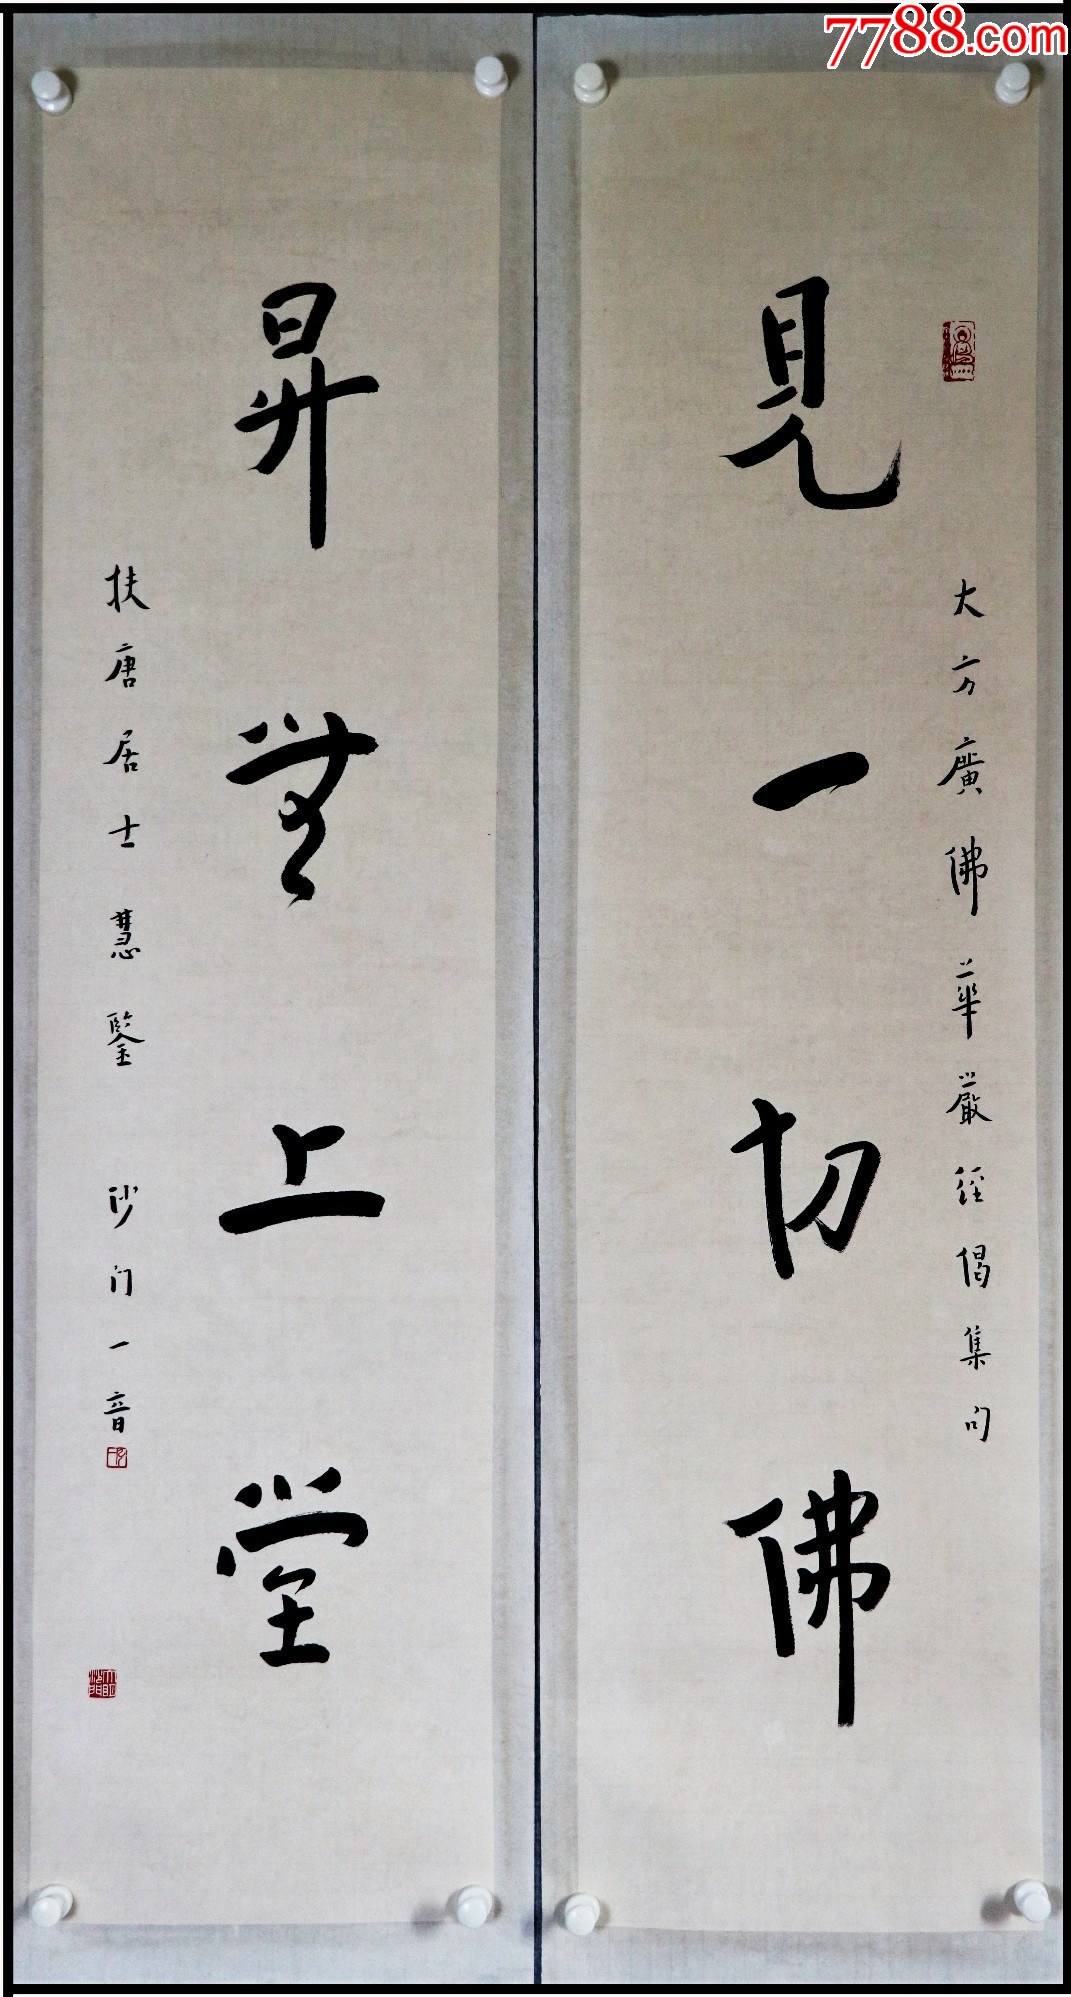 7788.com
大方廣佛華嚴經偈集句
見一切佛
昇無上堂
扶唐居士慧鑒 沙门一音